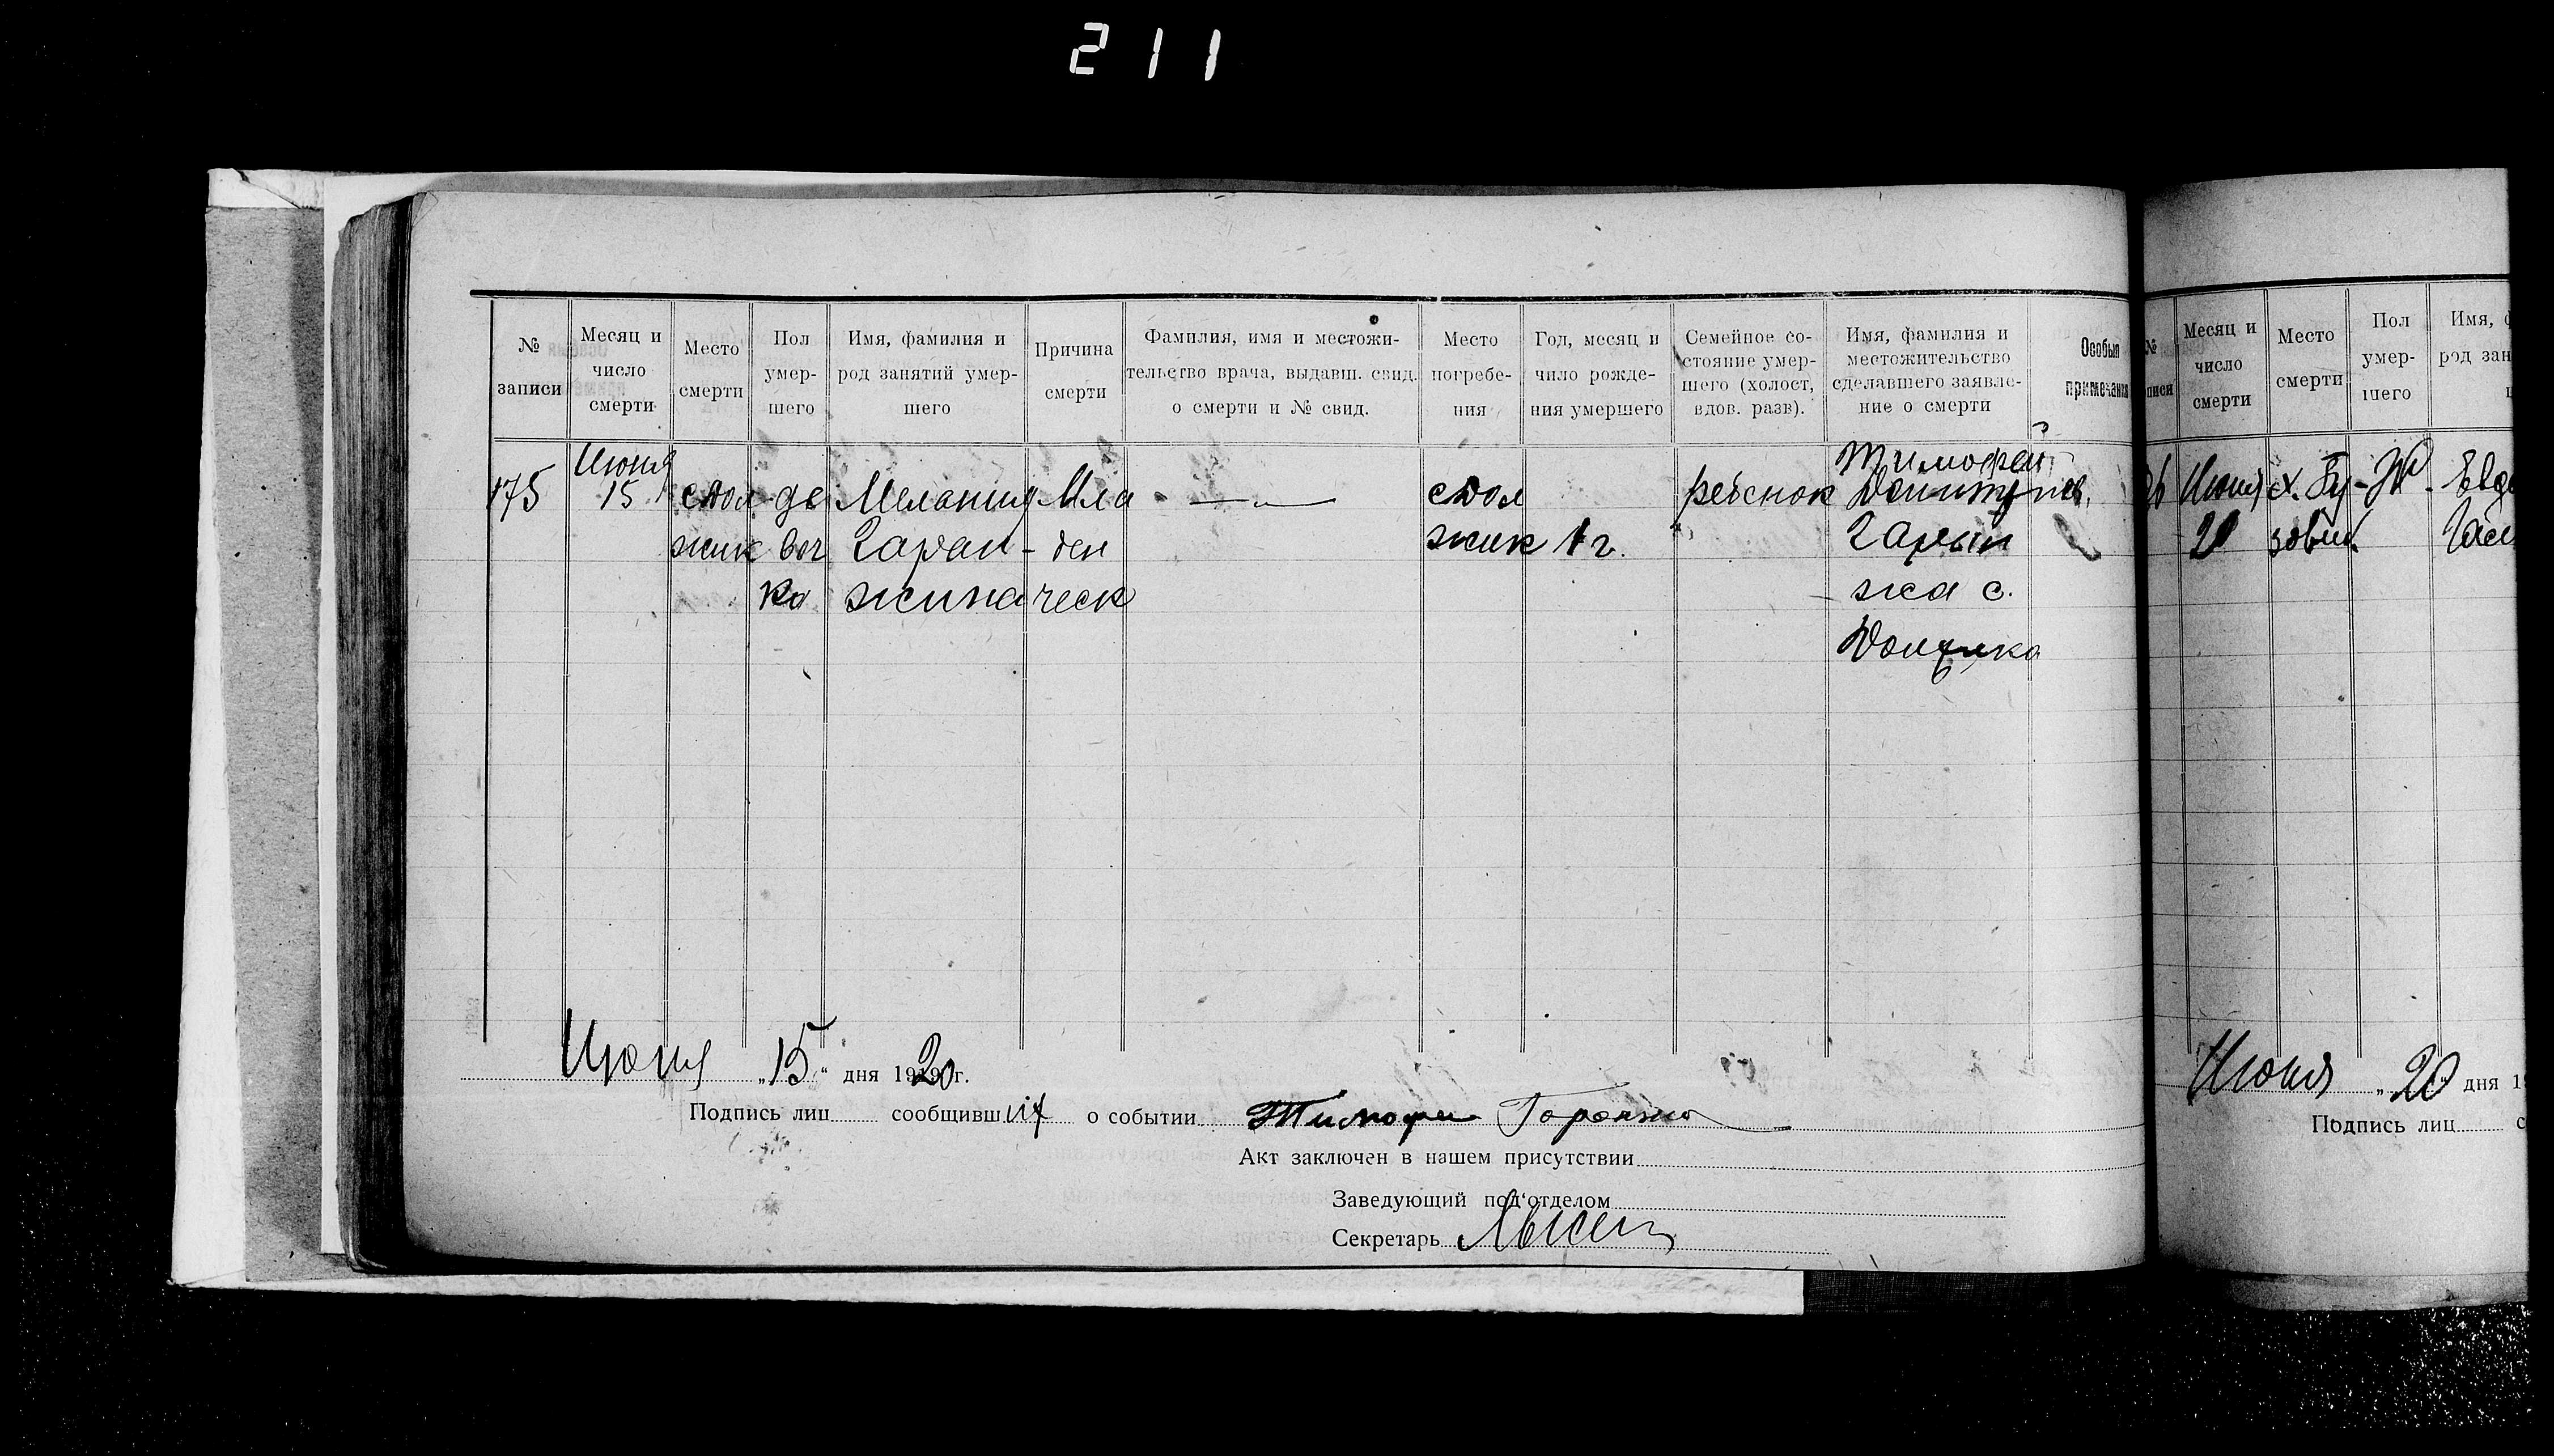 211
№ записи
Месяц и число смерти
Место смерти
Пол умер-шего
Имя, фамилия и род занятий умер-шего
Причина смерти
Фамилия, имя и местожи-тельство врача, выдавш. свид. о смерти и № свид.
Место погребе-ния
Год, месяц и число рожде-ния умершего
Семейное со-стояние умер-шего (холост, вдов. разв).
Имя, фамилия и местожительство сделавшего заявле-ние о смерти
Особыя примечания
175
Июня
15
с Дол
жик
де
воч
ка
Мелания
Гаран-
жина
Мла
ден
ческ
с Дол
жик
1 г.
ребенок
Тимофей
Гаран
жа с.
Июня „15“ дня 1920 г.
Подпись лиц сообщивших о событии Тимофей Горанжа
Акт заключен в нашем присутствии
Заведующий под'отделом
Секретарь
№
писи
Месяц и
число
смерти
Место
смерти
Пол
умер-
шего
Имя, ф
род зан
Июня
20
х.
Ж.
Июня „20“ дня 19
Подпись лиц